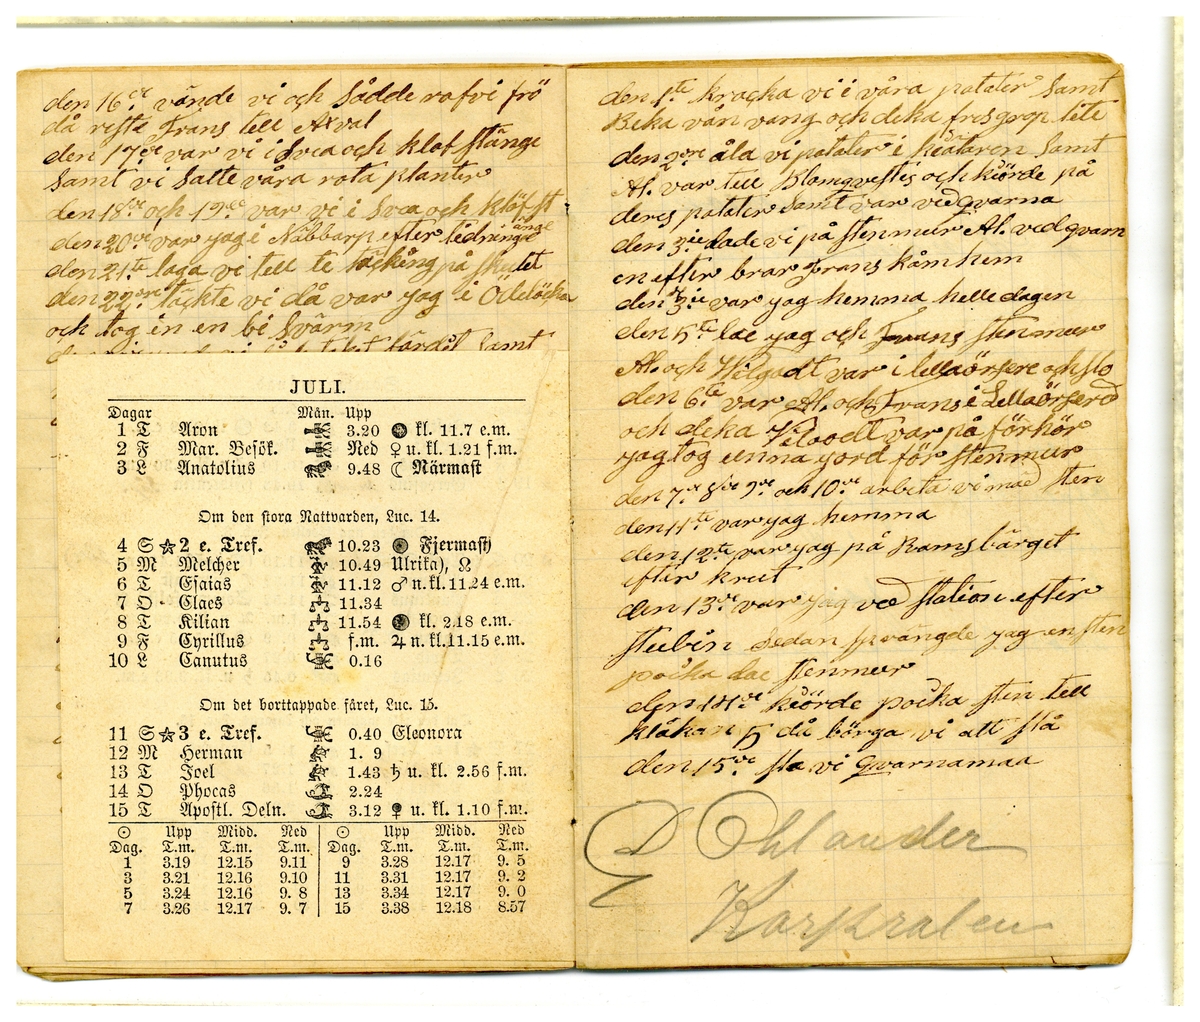 den 16de vände vi och sådde rofvi frö
då reste Frans tell Axval
den 17de var vi i Svea och klof stänge
Samt vi Satte våra rota planter
den 18de och 19de var vi i Svea och klöf st
änge
den 20de var jag i Näbbarp efter tedninge
den 21te laga vi tell te täcking på skutet
den 22dre täckte vi då var jag i Odelöcka
och tog in en bi Svärm
JULI.
Dagar Mån. Upp
1 T Aron 3.20 kl. 11.7 e.m.
2 F Mar. Besök. Ned ♀ u. kl. 1.21 f.m.
3 L Anatolius 9.48 ☾ Närmast
Om den stora Nattvarden, Luc. 14.
4 S ☆ 2 e. Tref. 10.23 Fjermast)
5 M Melcher 10.49 Ulrika), ☊
6 T Esaias 11.12 ♂ n. kl. 11.24 e.m.
7 O Claes 11.34
8 T Kilian 11.54 kl. 2.18 e.m.
9 F Cyrillus f.m. ♃ n. kl. 11.15 e.m.
10 L Canutus 0.16
Om det borttappade fåret, Luc. 15.
11 S ☆ 3 e. Tref. 0.40 Eleonora
12 M Herman 1. 9
13 T Joel 1.43 ♄ u. kl. 2.56 f.m.
14 O Phocas 2.24
15 T Apostl. Deln. 3.12 ☿ u. kl. 1.10 f.m.
☉ Upp Midd. Ned ☉ Upp Midd. Ned
Dag. T.m. T.m. T.m. Dag. T.m. T.m. T.m.
1 3.19 12.15 9.11 9 3.28 12.17 9. 5
3 3.21 12.16 9.10 11 3.31 12.17 9. 2
5 3.24 12.16 9. 8 13 3.34 12.17 9. 0
7 3.26 12.17 9. 7 15 3.38 12.18 8.57
den 1te kracka vi i våra patater Samt
Beka vån vang och deka fresgrop tete
den 2dre åla vi patater i keätaren Samt
Al. var tell Blomqvestis och kiörde på
deres patater Samt var ved qvarna
den 3ie lade vi på stenmur Al. ved qvarn
en efter brar Frans kåm hem
den 3ie var jag hemma helle dagen
den 5te lae jag och Frans stenmeer
Al. och Hilgodt var i lellaörsere och slo
den 6te var Al. och Frans i Lellaörsered
och deka var på förhör
jag tog unna jord för stenmur
den 7de 8de 9de och 10de arbeta vi med sten
den 11te var jag hemma
den 12te var jag på Ramsbärget
efter krut
den 13de var jag ved station efter
steebin Sedan sprängde jag en sten
pocka lae stenmeer
den 14de kiörde pocka sten tell
klåkan 5 då börga vi att slå
den 15de sla vi qvarnamaa
E Ohlander
Korpralen